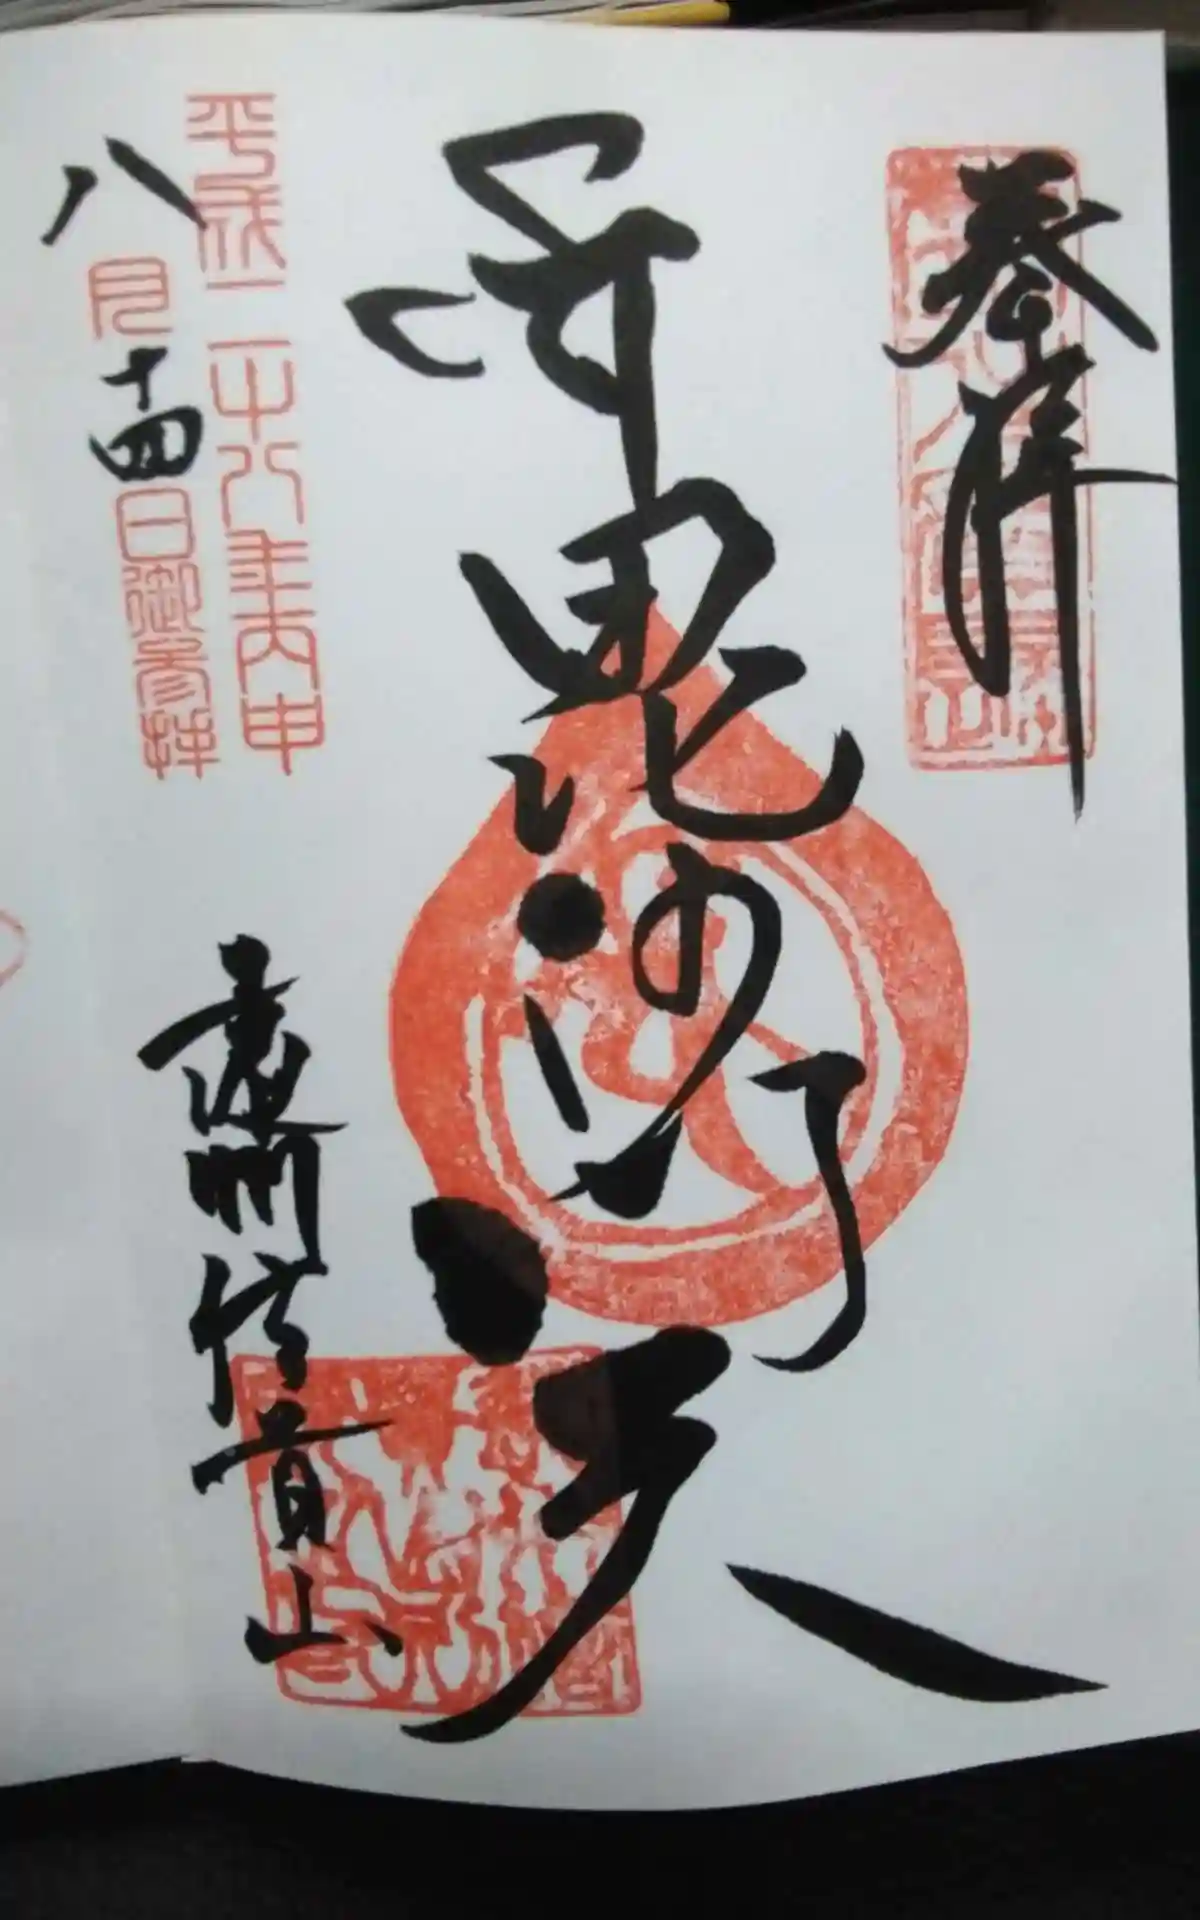 奉拝
毘沙門天
平成二十八年丙申
八月十四日御参拝
遠州信貴山